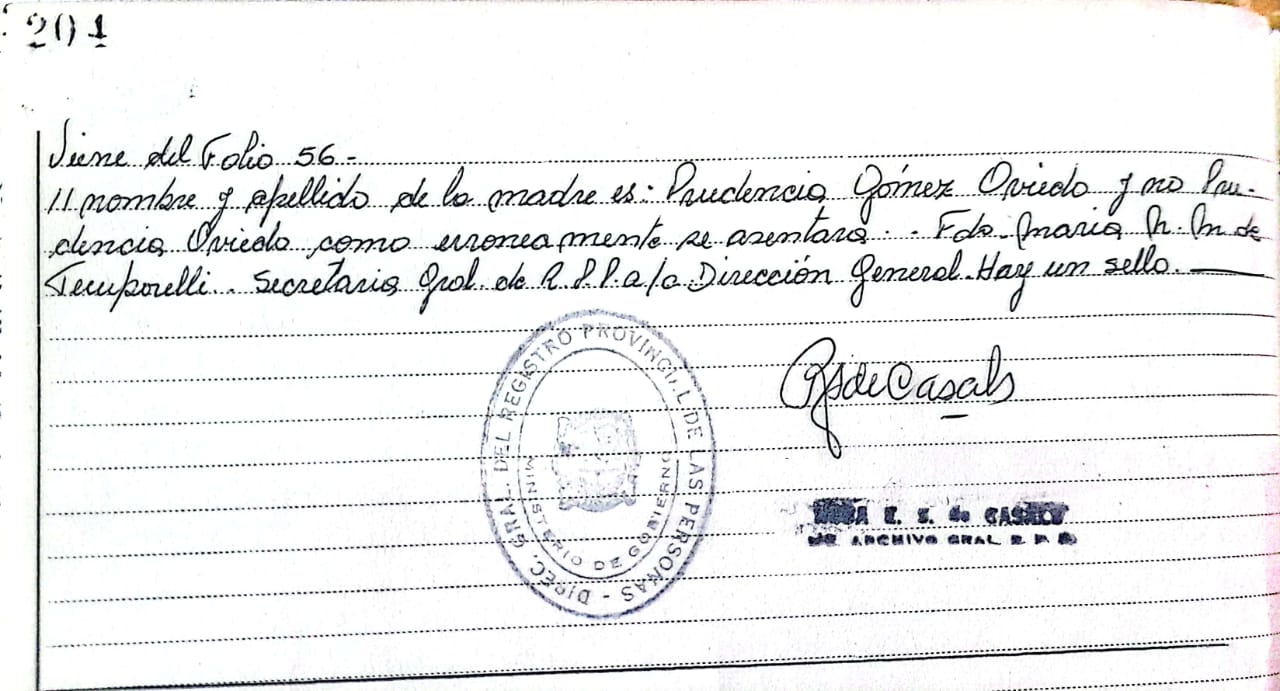 204
Viene del Folio 56-
11 nombre y apellido de la madre es: Prudencia Gómez Oviedo y no Pru-
dencia Oviedo como erroneamente se asentara.. Fdo. Maria N. M de
Temporelli.. Secretaria Gral. de R.P.P. a/c Dirección General. Hay un sello.
DIREC. GRAL. DEL REGISTRO PROVINCIAL DE LAS PERSONAS -
MINISTERIO DE GOBIERNO
de Casals
E. S. de CASALS
ARCHIVO GRAL R. P. P.